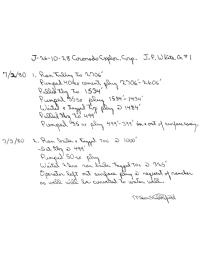 J-26-10-28 Coronado Copper Corp. J.P. White A #1
7/2/80 1. Ran Tubing To 2706'
Pumped 40sx cement plug 2706'-2606'
Pulled tbg To 1534'
Pumped 35 sx plug 1534'-1434'
Waited & tagged plug @ 1484'
Pulled tbg To 499'
Pumped 35 sx plug 499'-399'
7/3/80 2. Ran & tagged Toc @ 1000'
Set tbg @ 499'
Pumped 50 sx plug
Waited 2 hrs ran back tagged Toc @ 325'
Operator left out surface plug @ request of rancher
as well will be converted to water well.